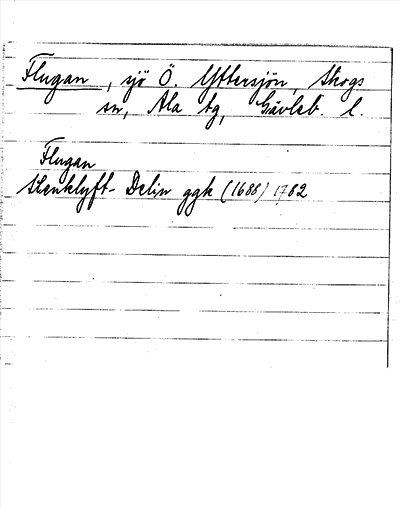 Flugan, sjö Ö. Yttersjön, Skogs
sn, Ala tg, Gävleb. l.
Flugan
Stenklyft- Delin ggk (1688) 1782